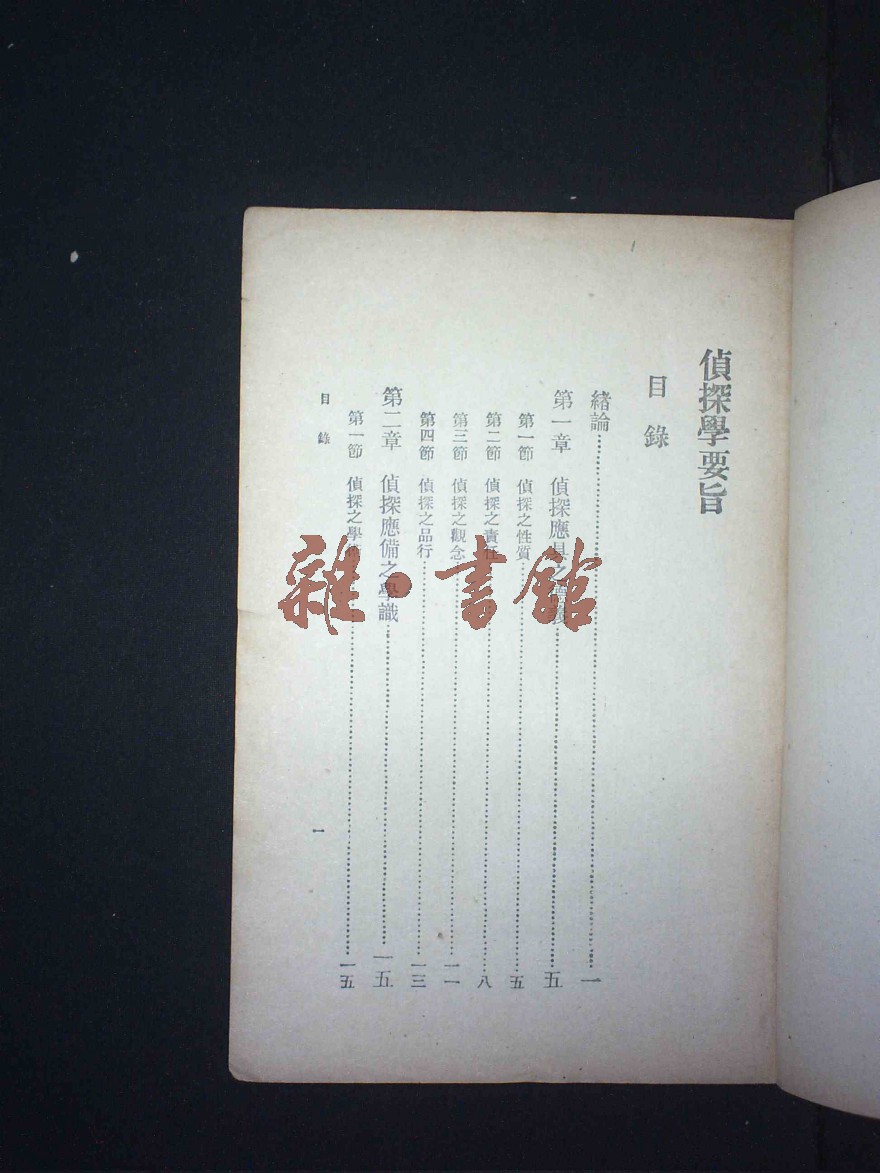 偵探學要旨
目錄
緒論……一
第一章 偵探應具之德義……五
第一節 偵探之性質……五
第二節 偵探之責任……八
第三節 偵探之觀念……一一
第四節 偵探之品行……一三
第二章 偵探應備之學識……一五
第一節 偵探之學術……一五
目錄
一
雜·書館